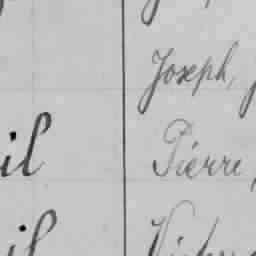 Joseph,
il Pierre,
il Victor